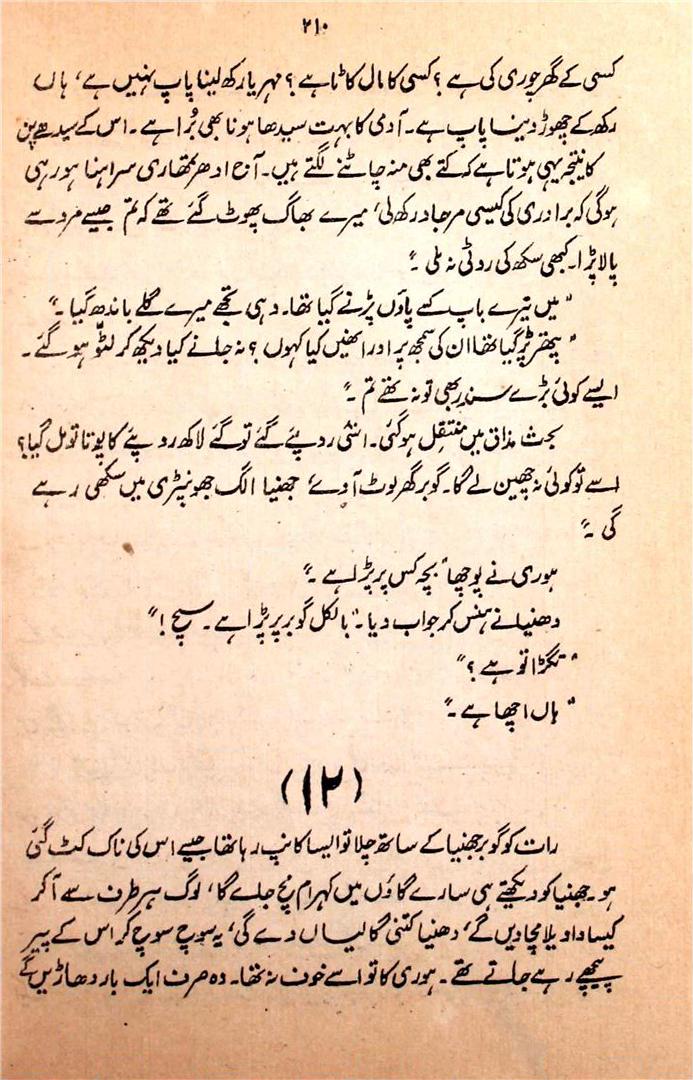 ۲۱۰
کسی کے گھر چوری کی ہے ؟ کسی کا مال کاٹا ہے ؟ مہریا رکھ لینا پاپ نہیں ہے، ہاں
رکھ کے چھوڑ دینا پاپ ہے۔ آدمی کا بہت سیدھا ہونا بھی بُرا ہے۔ اس کے سیدھے پن
کا نتیجہ یہی ہوتا ہے کہ کتے بھی منہ چاٹنے لگتے ہیں۔ آج ادھر تمھاری سراہنا ہو رہی
ہوگی کہ برادری کی کیسی مرجاد رکھ لی، میرے بھاگ پھوٹ گئے تھے کہ تم جیسے مرد سے
پالا پڑا۔ کبھی سکھ کی روٹی نہ ملی ۔"
"میں تیرے باپ کے پاؤں پڑنے گیا تھا۔ وہی تجھے میرے گلے باندھ گیا ۔"
"پتھر پڑ گیا تھا ان کی سمجھ پر اور انھیں کیا کہوں ؟ نہ جانے کیا دیکھ کر لٹّو ہو گئے ۔
ایسے کوئی بڑے سندر بھی تو نہ تھے تم ۔"
بحث مذاق میں منتقل ہوگئی۔ اسّی روپئے گئے تو گئے لاکھ روپئے کا پوتا تو مل گیا؟
اسے تو کوئی نہ چھین لے گا۔ گوبر گھر لوٹ آوے، جھنیا الگ جھونپڑی میں سکھی رہے
گی ۔"
ہوری نے پوچھا "بچہ کس پر پڑا ہے ۔"
دھنیا نے ہنس کر جواب دیا۔ "بالکل گوبر پر پڑا ہے ۔ سچ !"
"تگڑا تو ہے ؟"
"ہاں اچھا ہے ۔"
(۱۲)
رات کو گوبر جھنیا کے ساتھ چلا تو ایسا کانپ رہا تھا جیسے اس کی ناک کٹ گئی
ہو۔ جھنیا کو دیکھتے ہی سارے گاؤں میں کہرام مچ جلے گا، لوگ ہر طرف سے آ کر
کیسا واویلا مچا دیں گے، دھنیا کتنی گالیاں دے گی، یہ سوچ سوچ کر اس کے پیر
پیچھے رہے جاتے تھے ۔ ہوری کا تو اسے خوف نہ تھا۔ وہ صرف ایک بار دھاڑیں گے